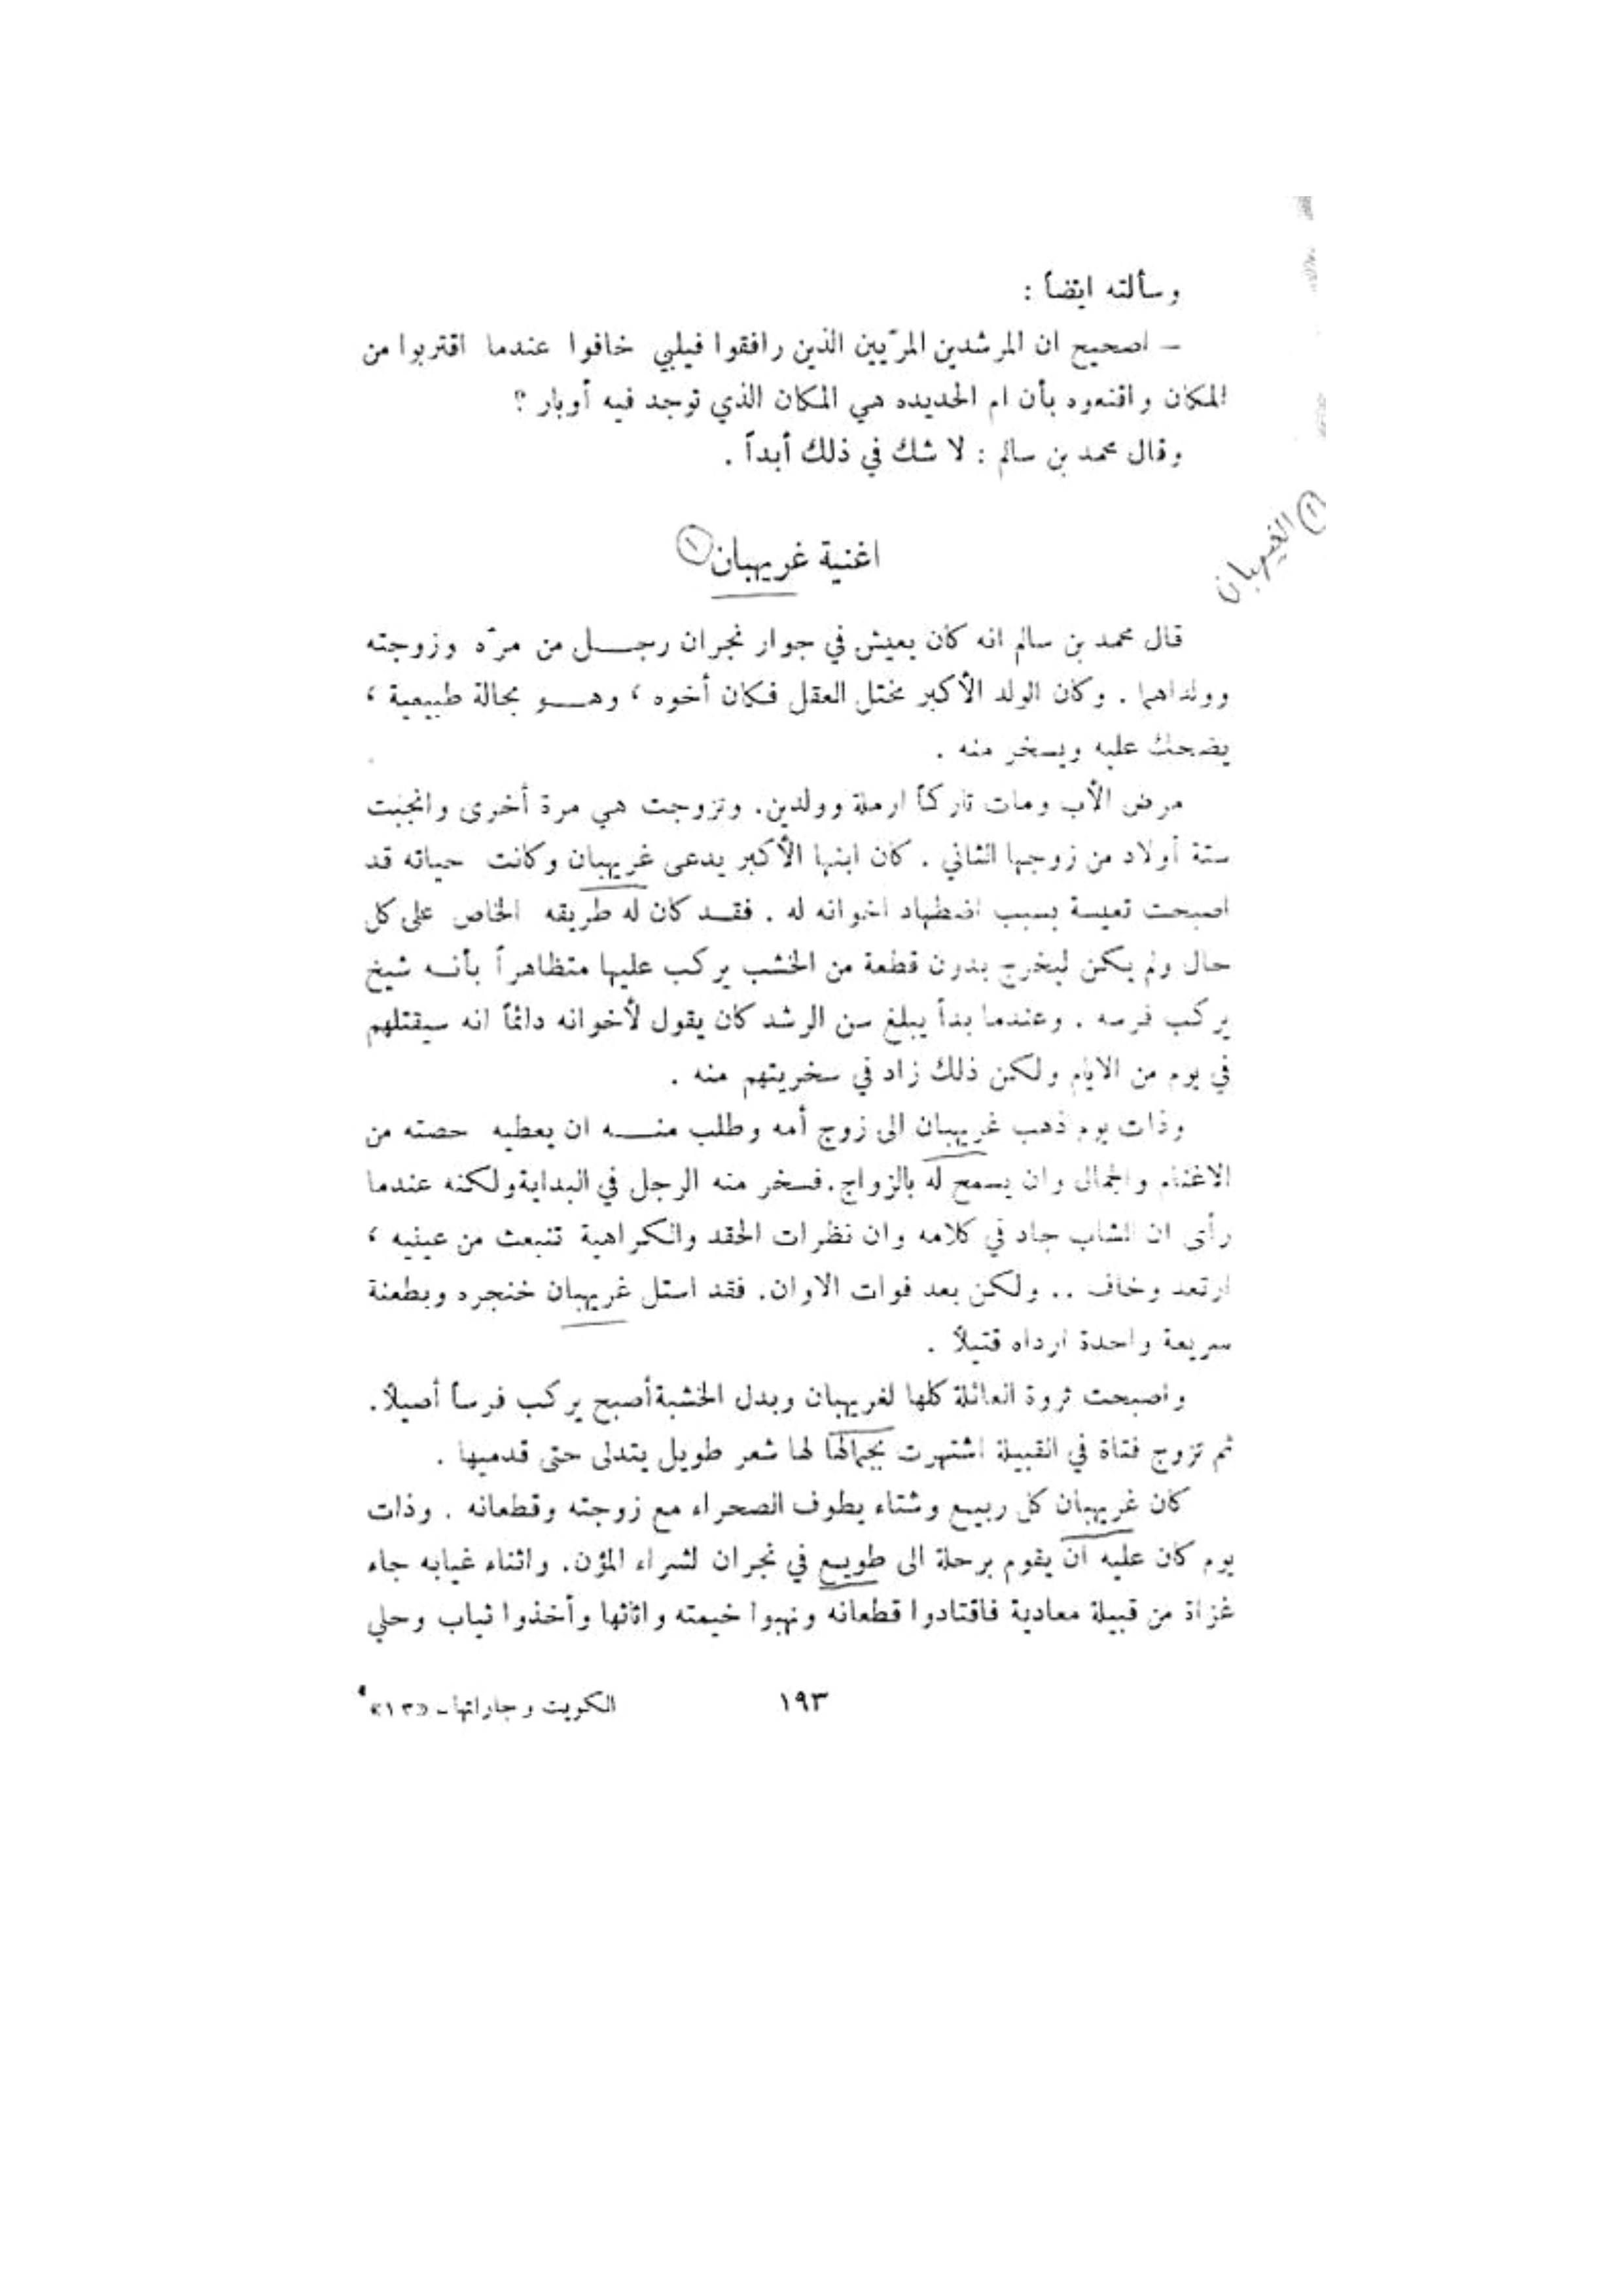 وسألته ايضاً :
– اصحيح ان المرشدين المرّيين الذين رافقوا فيلبي خافوا عندما اقتربوا من
المكان واقنعوه بأن ام الحديده هي المكان الذي توجد فيه أوبار ؟
وقال محمد بن سالم : لا شك في ذلك أبداً .
اغنية غريهبان ①
① الغيهبان
قال محمد بن سالم انه كان يعيش في جوار نجران رجل من مرّه وزوجته
وولداهما . وكان الولد الأكبر مختل العقل فكان أخوه ، وهو بحالة طبيعية ،
يضحك عليه ويسخر منه .
مرض الأب ومات تاركاً ارملة وولدين. وتزوجت هي مرة أخرى وانجبت
ستة أولاد من زوجها الثاني . كان ابنها الأكبر يدعى غريهبان وكانت حياته قد
اصبحت تعيسة بسبب اضطهاد اخوانه له . فقد كان له طريقه الخاص على كل
حال ولم يكن ليخرج بدون قطعة من الخشب يركب عليها متظاهراً بأنه شيخ
يركب فرسه . وعندما بدأ يبلغ سن الرشد كان يقول لأخوانه دائماً انه سيقتلهم
في يوم من الايام ولكن ذلك زاد في سخريتهم منه .
وذات يوم ذهب غريهبان الى زوج أمه وطلب منه ان يعطيه حصته من
الاغنام والجمال وان يسمح له بالزواج. فسخر منه الرجل في البداية ولكنه عندما
رأى ان الشاب جاد في كلامه وان نظرات الحقد والكراهية تنبعث من عينيه ،
ارتعد وخاف .. ولكن بعد فوات الاوان. فقد استل غريهبان خنجره وبطعنة
سريعة واحدة ارداه قتيلاً .
واصبحت ثروة العائلة كلها لغريهبان وبدل الخشبة أصبح يركب فرساً أصيلاً.
ثم تزوج فتاة في القبيلة اشتهرت بجمالها لها شعر طويل يتدلى حتى قدميها .
كان غريهبان كل ربيع وشتاء يطوف الصحراء مع زوجته وقطعانه . وذات
يوم كان عليه ان يقوم برحلة الى طويع في نجران لشراء المؤن. واثناء غيابه جاء
غزاة من قبيلة معادية فاقتادوا قطعانه ونهبوا خيمته واثاثها وأخذوا ثياب وحلي
١٩٣
الكويت وجاراتها – «١٣»